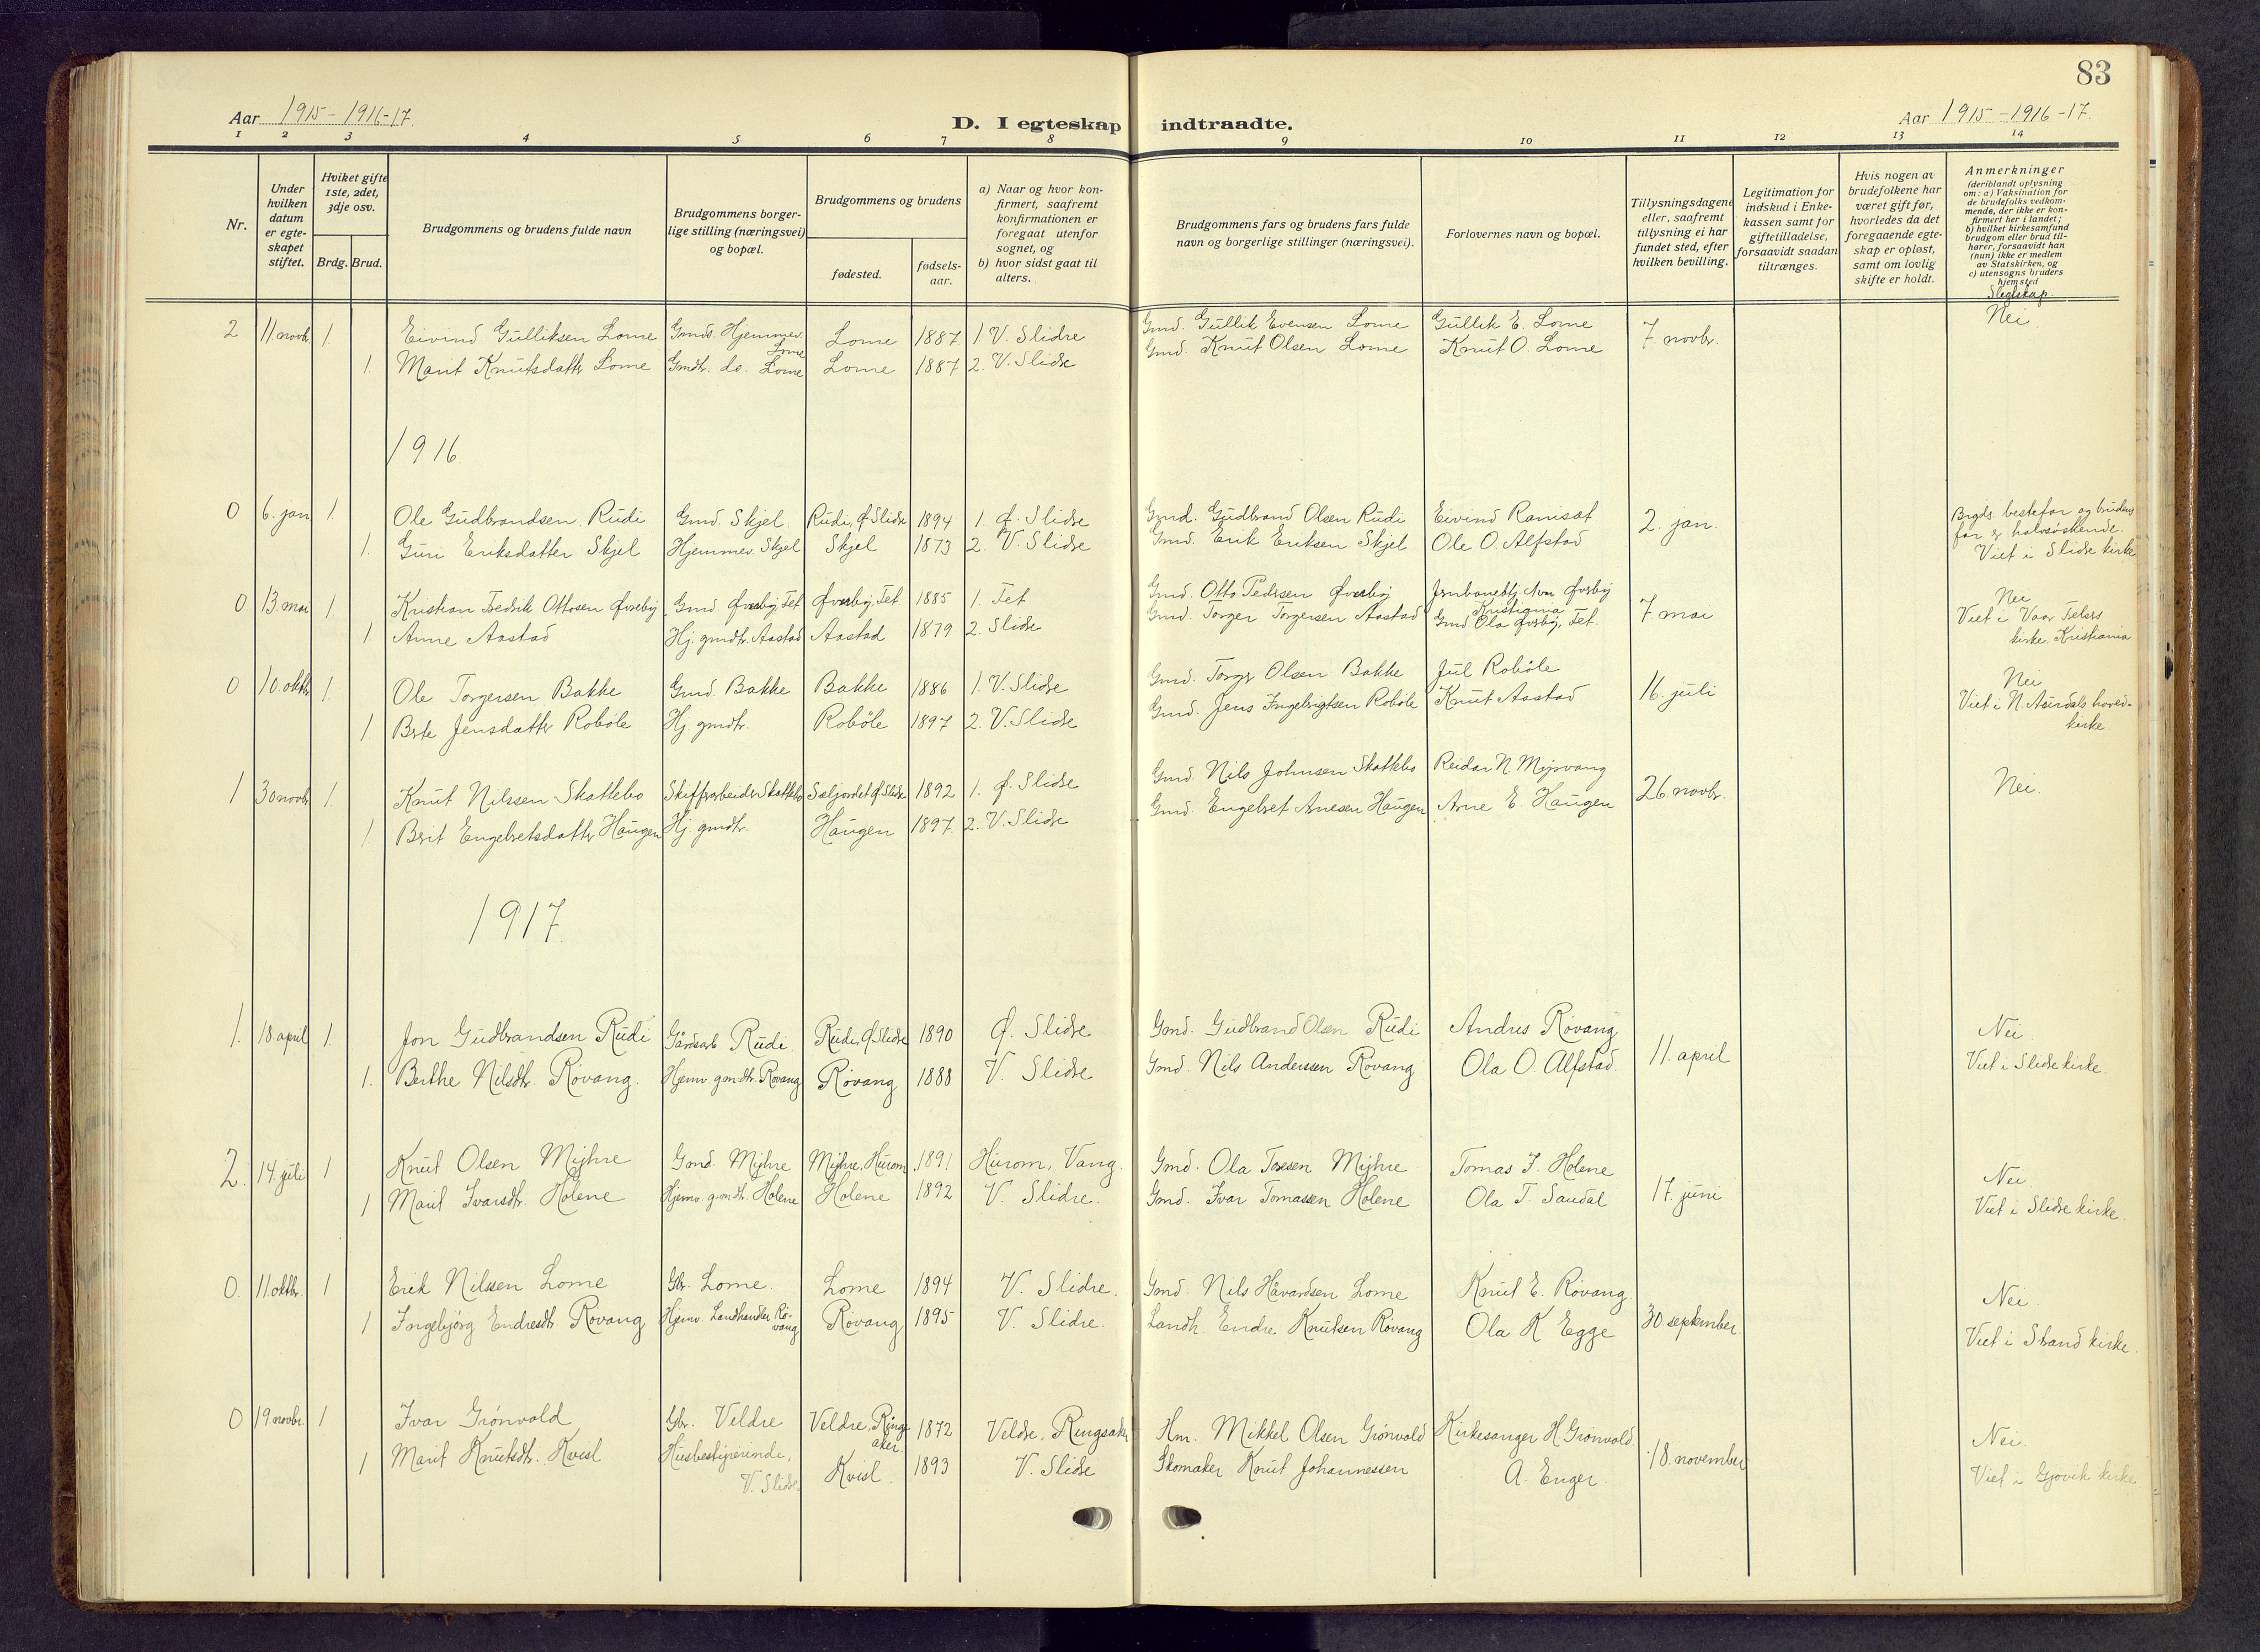 83
Aar 1915 - 1916 - 17.
D. I egteskap indtraadte.
Aar 1915 - 1916 - 17.
1 2 3 4 5 6 7 8 9 10 11 12 13 14
Nr.
Under hvilken datum er egte-skapet stiftet.
Hviket gifte 1ste, 2det, 3dje osv.
Brdg. Brud.
Brudgommens og brudens fulde navn
Brudgommens borger-lige stilling (næringsvei) og bopæl.
Brudgommens og brudens
fødested.
fødsels-aar.
a) Naar og hvor kon-firmert, saafremt konfirmationen er foregaat utenfor sognet, og
b) hvor sidst gaat til alters.
Brudgommens fars og brudens fars fulde navn og borgerlige stillinger (næringsvei).
Forlovernes navn og bopæl.
Tillysningsdagene eller, saafremt tillysning ei har fundet sted, efter hvilken bevilling.
Legitimation for indskud i Enke-kassen samt for giftetilladelse, forsaavidt saadan tiltrænges.
Hvis nogen av brudefolkene har været gift før, hvorledes da det foregaaende egte-skap er opløst, samt om lovlig skifte er holdt.
Anmerkninger
(deriblandt oplysning om: a) Vaksination for de brudefolks vedkom-mende, der ikke er kon-firmert her i landet; b) hvilket kirkesamfund brudgom eller brud til-hører, forsaavidt han (hun) ikke er medlem av Statskirken, og c) utensogns bruders hjemsted
Slegtskap.
2 11 novb. 1. Eivind Gulliksen Lome Gmds. Hjemmev. Lome Lome 1887 1 V. Slidre Gmd. Gullik Evensen Lome Gullik E. Lome 7. novbr. Nei
1. Marit Knutsdattr Lome Gmdtr. do. Lome Lome 1887 2. V. Slidre Gmd. Knut Olsen Lome Knut O. Lome
1916
0 6. jan 1. Ole Gudbrandsen Rudi Gmd. Skjel. Rudi, Ø. Slidre 1894 1. Ø. Slidre Gmd. Gudbrand Olsen Rudi Eivind Ranisat 2. jan. Brgds. bestefar og brudens
1. Guri Eriksdatter Skjel Hjemmev. Skjel Skjel 1873 2. V. Slidre Gmd. Erik Eriksen Skjel Ole O. Alfstad far er halvsøskende.
Viet i Slidre kirke
0 13. mai 1. Kristian Fredrik Ottosen Øvrebÿ Gmd. Øvrebÿ Fet Øvrebÿ, Fet 1885 1. Fet Gmd. Otto Pedersen Øvrebÿ Øvrebÿ Kristiania 7 mai Nei
1 Anne Aastad Hj. gmdtr. Aastad Aastad 1879 2. Slidre Gmd. Torger Torgersen Aastad Gmd Ola Øvrebÿ, Fet. Viet i Vaar Frelsers
kirke, Kristiania
0 10. oktbr 1. Ole Torgersen Bakke Gmd. Bakke Bakke 1886 1. V. Slidre Gmd. Torgr Olsen Bakke Jul Robøle 16. juli Nei
1 Brte Jensdattr Robøle Hj. gmdtr. Robøle 1897 2. V. Slidre Gmd. Jens Ingebrigtsen Robøle Knut Aastad Viet i N. Aurdals hoved-
kirke.
1 30 novbr 1. Knut Nilssen Skattebo Skiferarbeider Skattebo Sæljordet Ø. Slidre 1892 1. Ø. Slidre Gmd. Nils Johnsen Skattebo Reidar N Myrvang 26. novbr. Nei.
1 Brit Engebretsdattr Haugen Hj. gmdtr. Haugen 1897. 2. V. Slidre Gmd. Engebret Arnesen Haugen Arne E Haugen
1917.
1. 18 april 1. Jon Gudbrandsen Rudi Gårdsarb. Rudi. Rudi, Ø. Slidre 1890 Ø. Slidre Gmd. Gudbrand Olsen Rudi Andris Røvang 11. april Nei
1. Berthe Nilsdtr. Røvang. Hjemv. gmdtr. Røvang Røvang 1888 V. Slidre Gmd. Nils Anderssen Røvang Ola O. Alfstad. Viet i Slidre kirke.
2. 14. juli 1 Knut Olsen Mÿhre Gmd. Mÿhre Mÿhre, Hurom 1891 Hurom, Vang. Gmd. Ola Toresen Mÿhre Tomas I. Holene 17. juni Nei.
1 Marit Ivarsdtr. Holene Hjemv. gmdtr. Holene Holene 1892 V. Slidre. Gmd. Ivar Tomassen Holene Ola T. Sandal Viet i Slidre kirke.
0. 11. oktbr. 1 Erik Nilssen Lome Gbr. Lome. Lome 1894 V. Slidre. Gmd. Nils Håvardsen Lome Knut E. Røvang 30 september. Nei.
1 Ingebjørg Endresdtr. Røvang Hjemv. Landhandler Rø-vang Røvang 1895 V. Slidre. Landh. Endre Knutsen Røvang Ola K. Egge Viet i Strand kirke.
0 19 novbr. 1 Ivar Grønvold Gbr. Veldre Veldre, Rings-aker. 1872 Veldre, Ringsaker Hm. Mikkel Olsen Grønvold Kirkesanger H. Grønvold. 18. november Nei.
1 Marit Knutsdtr. Kvisl Husbestÿrerinde, V. Slidre. Kvisl. 1893 V. Slidre Skomaker Knut Johannessen A. Enger. Viet i Gjøvik kirke